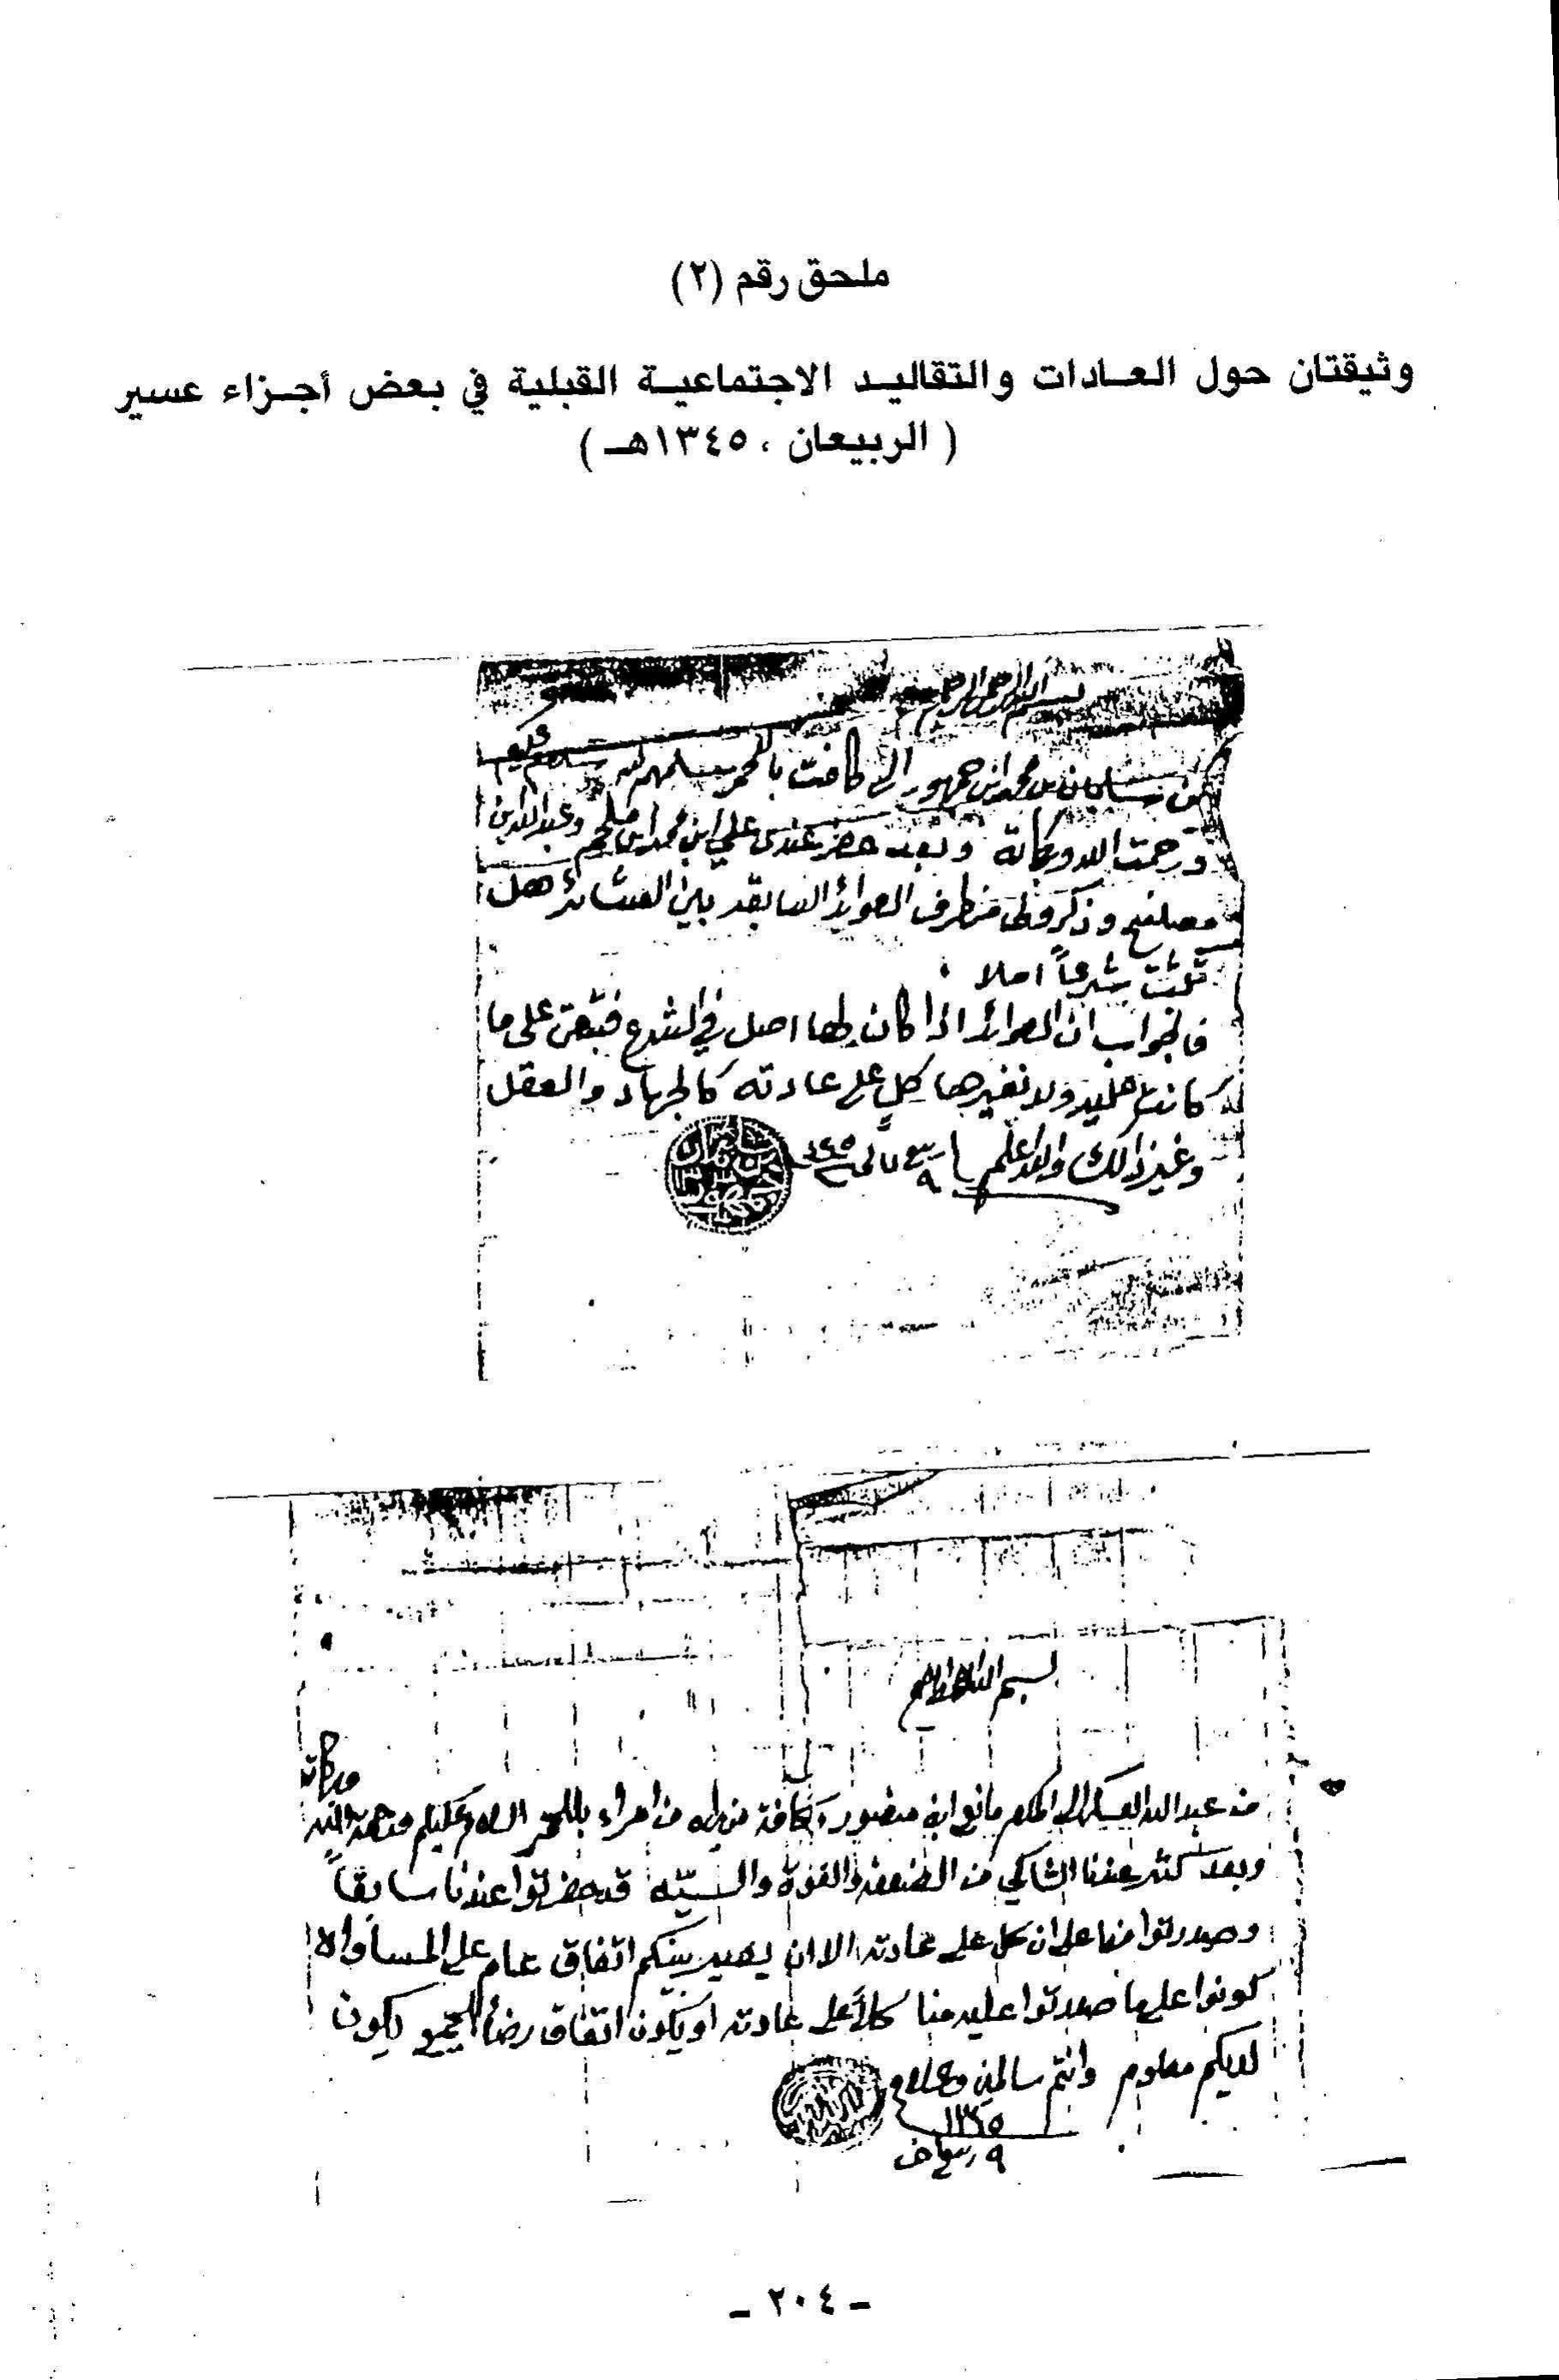 ملحق رقم (٢)
وثيقتان حول العادات والتقاليد الاجتماعية القبلية في بعض أجزاء عسير
( الربيعان ، ١٣٤٥هـ )
بسم الله الرحمن الرحيم
من سليمان بن محمد ابن جمهور الى كافت بالحمر سلمهم الله سلام عليكم
ورحمت الله وبركاته وبعد حضر عندي علي ابن محمد ابن ملحم وعبدالله ابن
مصلح وذكرولي منطرف العوايد السابقه بين العشاير هل
تثبت شرعاً املا
فالجواب ان العوايد اذا كان لها اصل في الشرع فتبقى على ما
كانت عليه ولا نغيرها كل على عادته كالجهاد والعقل
وغير ذالك والله اعلم ٩ ربيع ثاني ١٣٤٥
بسم الله الرحمن الرحيم
من عبدالله العسكر الى المكرم مانع ابن منصور وكافة من امراء بللحمر السلام عليكم ورحمة الله وبركاته
وبعد كثر عندنا الشاكي من الضعفه والقوة والسيه قد حضرتوا عندنا سابقاً
وصدرتوا منا على ان كل على عادته الا ان يصير بينكم اتفاق عام على المساواه
كونوا على ما صدرتوا عليه منا كلاً على عادته او يكون اتفاق رضاً الجميع يكون
لديكم معلوم وانتم سالمين والسلام
١٣٤٥
٩ ربيع
- ٢٠٤ -